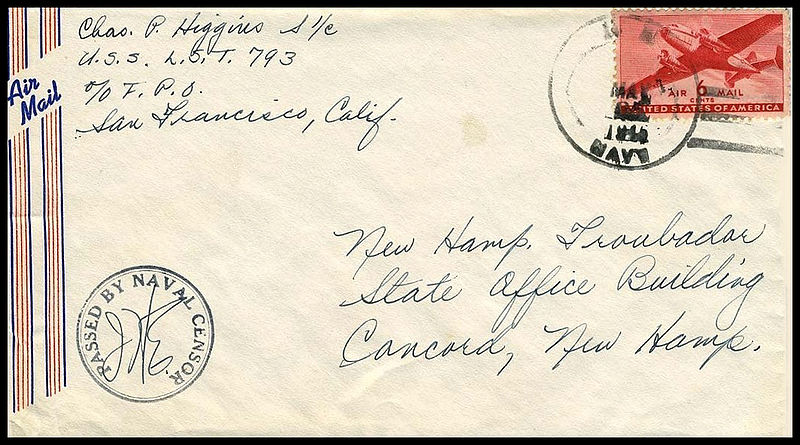 Chas. P. Higgins S 1/c
U.S.S. L.S.T. 793
c/o F.P.O.
San Francisco, Calif.
Air
Mail
AIR 6 MAIL
CENTS
UNITED STATES OF AMERICA
NAVY
New Hamp. Troubadour
State Office Building
Concord, New Hamp.
PASSED BY NAVAL CENSOR